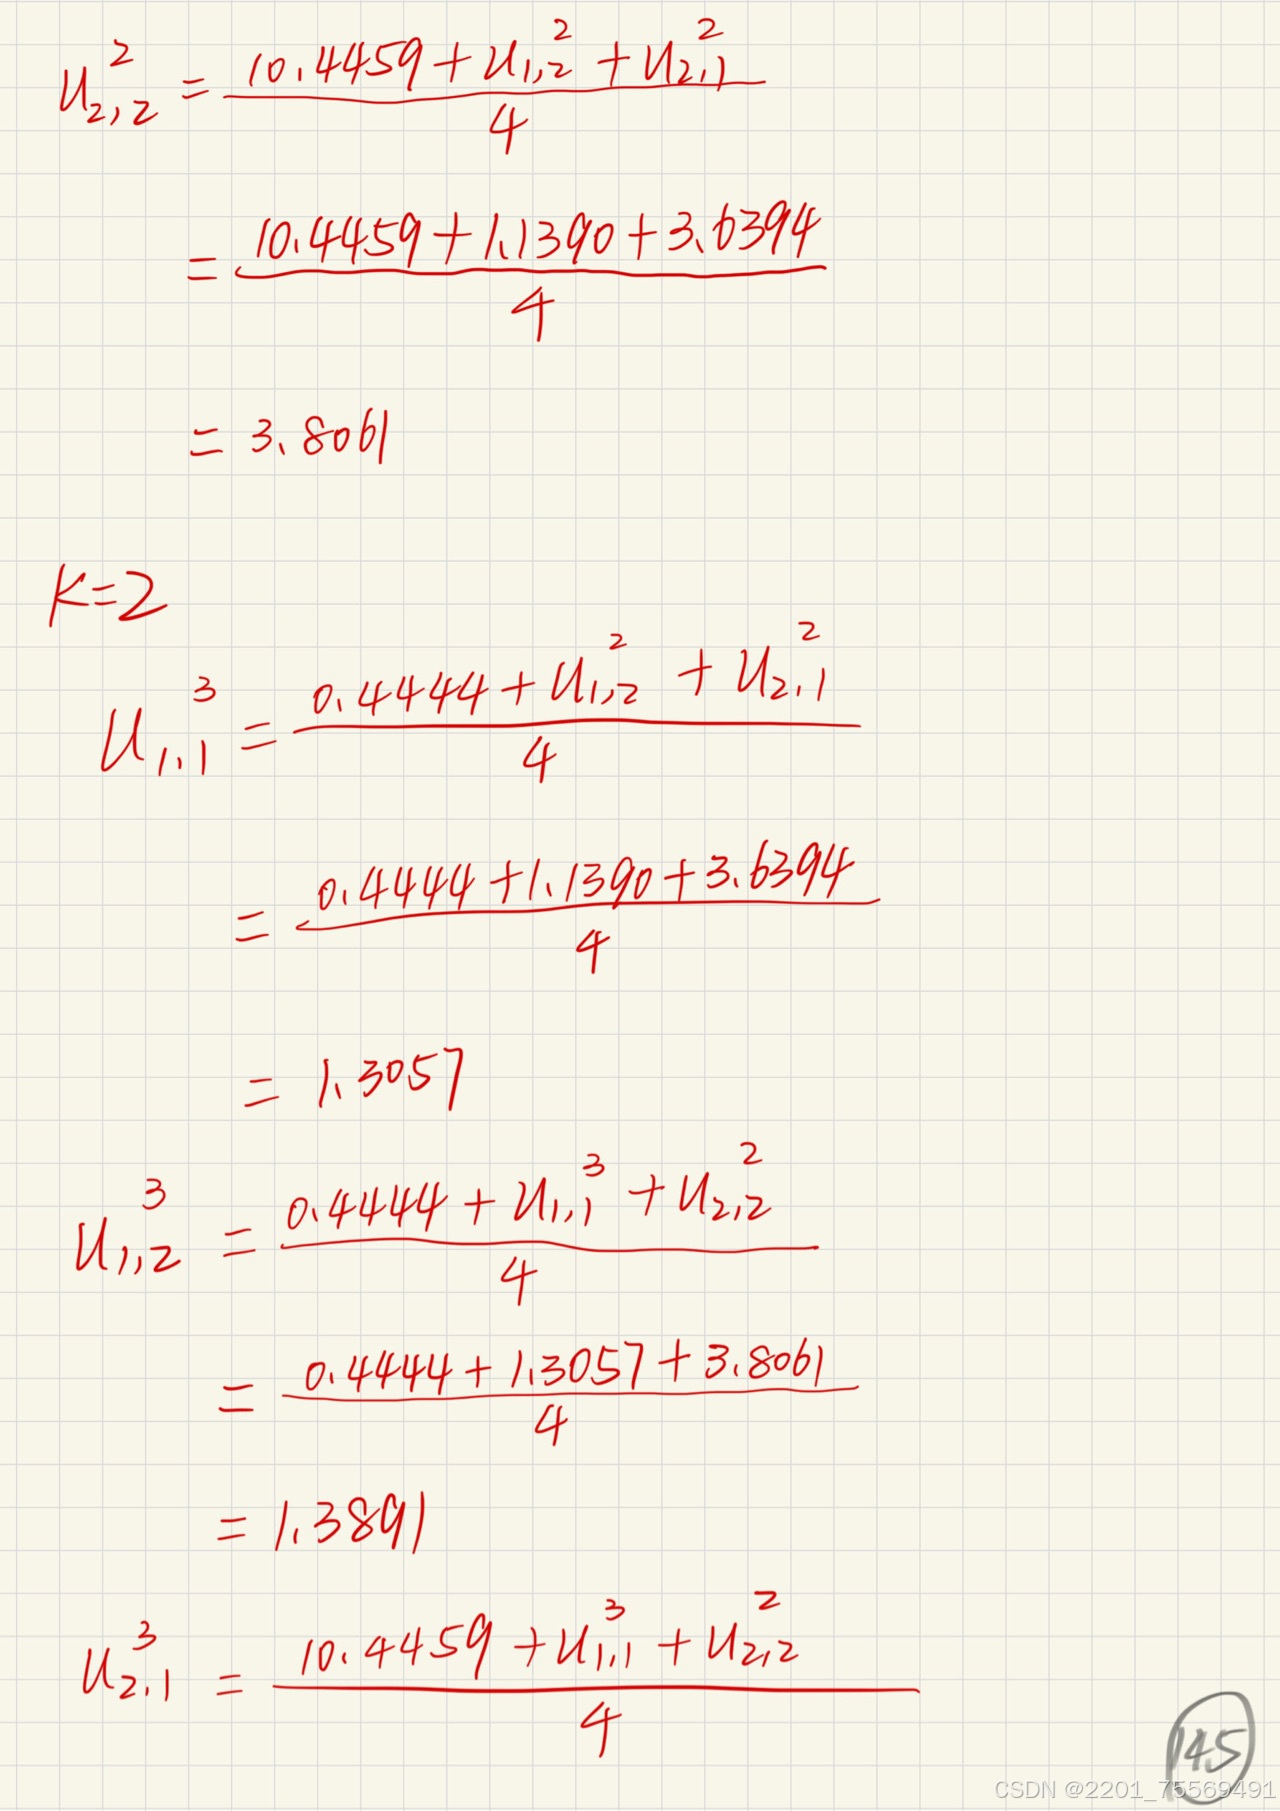 u_{2,2}^2 = \frac{10.4459+u_{1,2}^2+u_{2,1}^2}{4}
= \frac{10.4459+1.1390+3.6394}{4}
= 3.8061
K=2
u_{1,1}^3 = \frac{0.4444+u_{1,2}^2+u_{2,1}^2}{4}
= \frac{0.4444+1.1390+3.6394}{4}
= 1.3057
u_{1,2}^3 = \frac{0.4444+u_{1,1}^3+u_{2,2}^2}{4}
= \frac{0.4444+1.3057+3.8061}{4}
= 1.3891
u_{2,1}^3 = \frac{10.4459+u_{1,1}^3+u_{2,2}^2}{4}
145
CSDN @2201_75569491